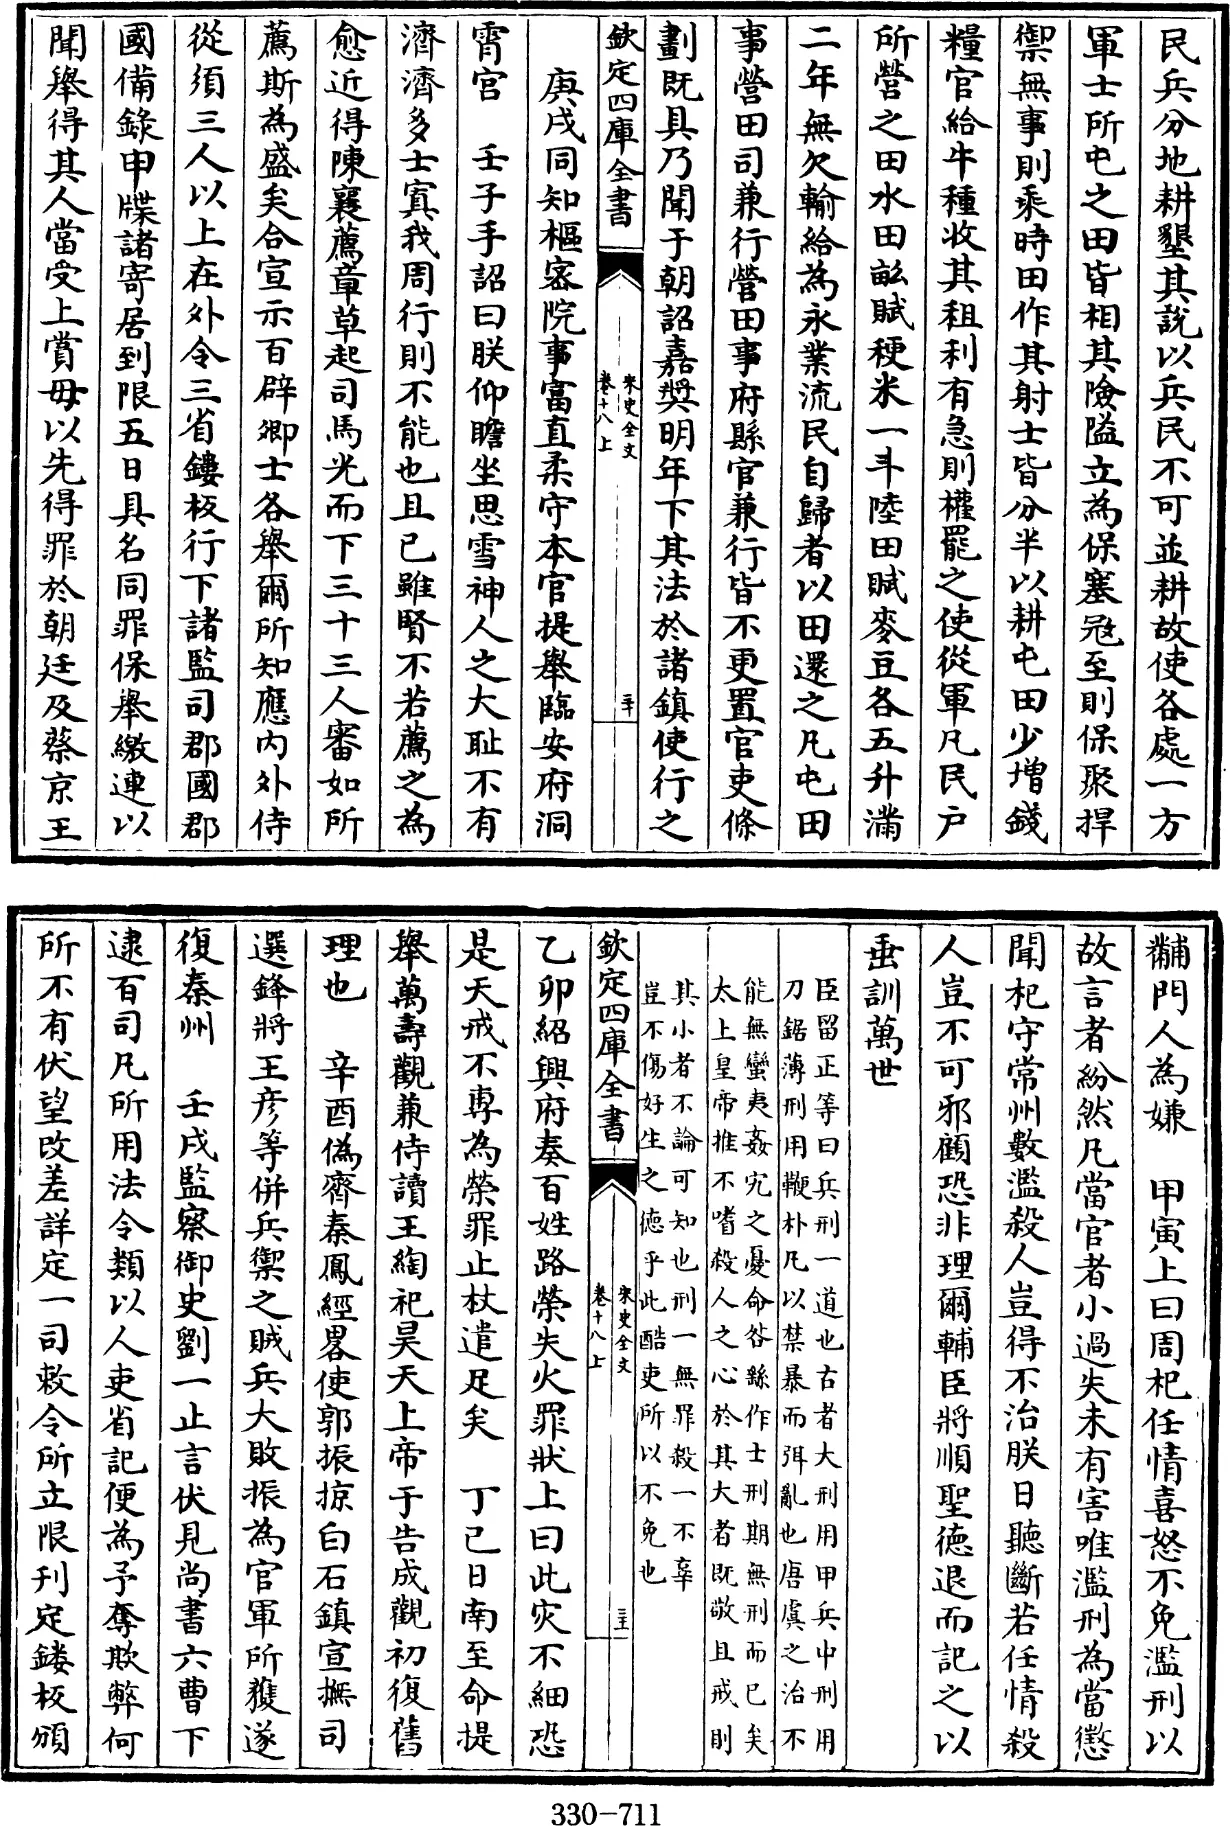 民兵分地耕墾其説以兵民不可並耕故使各處一方
軍士所屯之田皆相其險隘立為保塞冦至則保聚捍
禦無事則乘時田作其射士皆分半以耕屯田少增錢
糧官給牛種收其租利有急則權罷之使從軍凡民户
所營之田水田畝賦稉米一斗陸田賦麥豆各五升滿
二年無欠輸給為永業流民自歸者以田還之凡屯田
事營田司兼行營田事府縣官兼行皆不更置官吏條
劃既具乃聞于朝詔嘉奬明年下其法於諸鎮使行之
欽定四庫全書
宋史全文
卷十八上
三十
庚戌同知樞宻院事富直柔守本官提舉臨安府洞
霄宮　壬子手詔曰朕仰瞻坐思雪神人之大耻不有
濟濟多士寘我周行則不能也且已雖賢不若薦之為
愈近得陳襄薦章草起司馬光而下三十三人審如所
薦斯為盛矣合宣示百辟卿士各舉爾所知應内外侍
從須三人以上在外令三省鏤板行下諸監司郡國郡
國備錄申牒諸寄居到限五日具名同罪保舉繳連以
聞舉得其人當受上賞毋以先得罪於朝廷及蔡京王
黼門人為嫌　甲寅上曰周杞任情喜怒不免濫刑以
故言者紛然凡當官者小過失未有害唯濫刑為當懲
聞杞守常州數濫殺人豈得不治朕日聽斷若任情殺
人豈不可邪顧恐非理爾輔臣將順聖德退而記之以
垂訓萬世
臣留正等曰兵刑一道也古者大刑用甲兵中刑用
刀鋸薄刑用鞭朴凡以禁暴而弭亂也唐虞之治不
能無蠻夷姦宄之憂命咎繇作士刑期無刑而已矣
太上皇帝推不嗜殺人之心於其大者既敬且戒則
其小者不論可知也刑一無罪殺一不辜
豈不傷好生之德乎此酷吏所以不免也
欽定四庫全書
宋史全文
卷十八上
三十
乙卯紹興府奏百姓路榮失火罪狀上曰此灾不細恐
是天戒不専為榮罪止杖遣足矣　丁已日南至命提
舉萬壽觀兼侍讀王綯祀昊天上帝于告成觀初復舊
理也　辛酉偽齊秦鳳經畧使郭振掠白石鎮宣撫司
選鋒將王彦等併兵禦之賊兵大敗振為官軍所獲遂
復秦州　壬戌監察御史劉一止言伏見尚書六曹下
逮百司凡所用法令類以人吏省記便為予奪欺弊何
所不有伏望改差詳定一司敕令所立限刋定鏤板頒
330-711